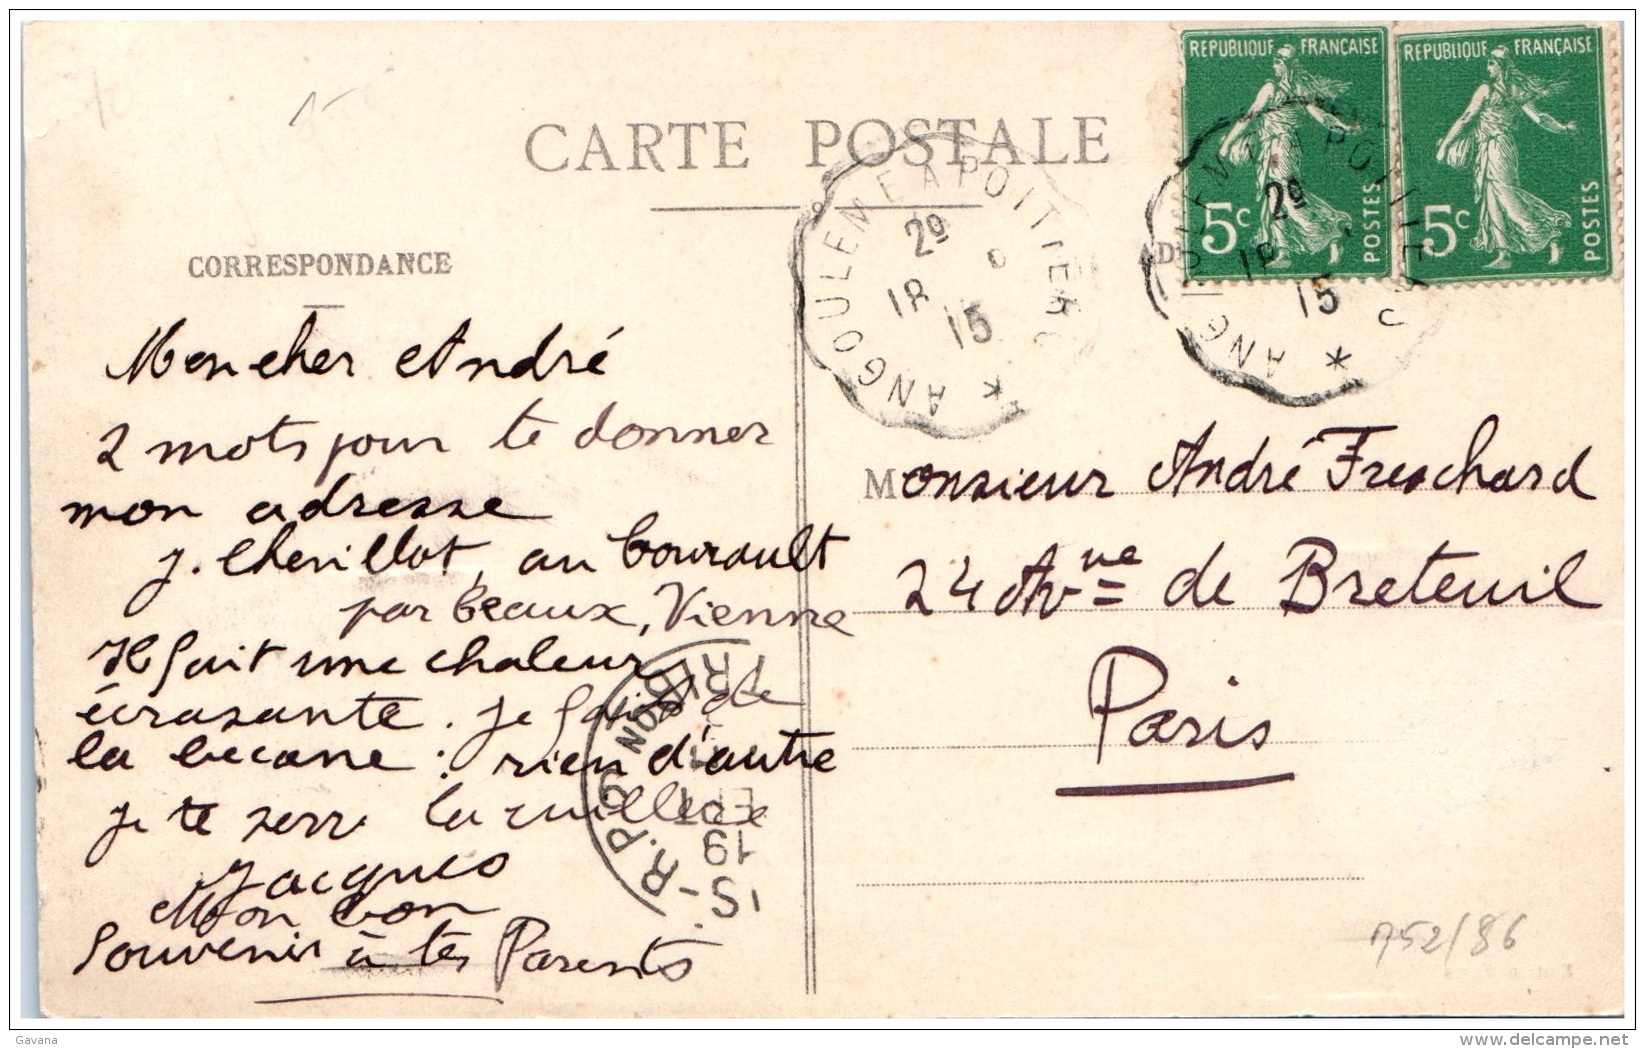 CARTE POSTALE
CORRESPONDANCE
Mon cher André
2 mots pour te donner
mon adresse
J. Chevillot, au Courault
par Ceaux, Vienne
Il fait une chaleur
écrasante. Je fais de
la bécane : rien d'autre
Je te serre la cuillère
Jacques
Mon bon
Souvenir à tes Parents
REPUBLIQUE FRANÇAISE
5c
POSTES
REPUBLIQUE FRANÇAISE
5c
POSTES
ANGOULEME A POITIERS
29
18
15
29
18
15
Monsieur André Freschard
24 Avne de Breteuil
Paris
19
752/86
Gavana
www.delcampe.net